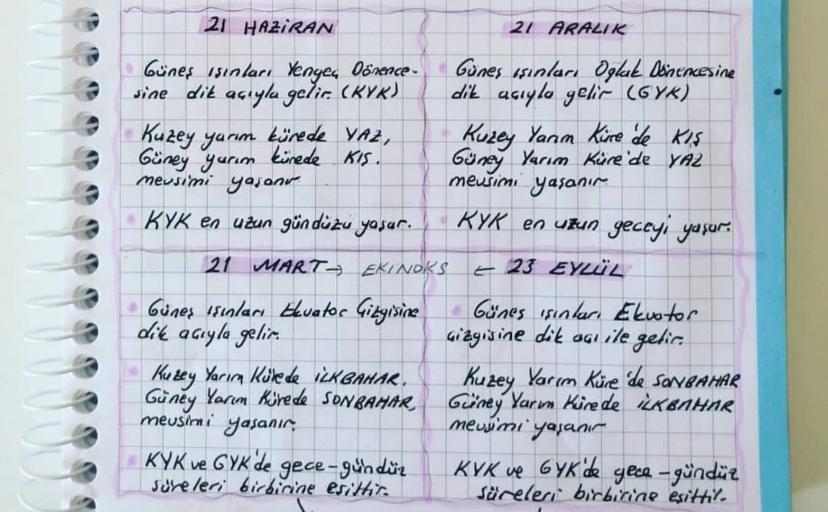 21 HAZİRAN
Güneş ışınları Yengeç Dönence-
sine dik açıyla gelir. (KYK)
Kuzey yarım kürede YAZ,
Güney yarım kürede KIŞ.
mevsimi yaşanır
KYK en uzun gündüzü yaşar.
21 ARALIK
Güneş ışınları Oğlak Dönencesine
dik açıyla gelir (GYK)
Kuzey Yarım Küre'de KIŞ
Güney Yarım Küre'de YAZ
mevsimi yaşanır
KYK en uzun geceyi yaşar.
21 MART → EKINOKS ← 23 EYLÜL
Güneş ışınları Ekvator Çizgisine
dik açıyla gelir.
Kuzey Yarım Kürede İLKBAHAR,
Güney Yarım Kürede SONBAHAR,
mevsimi yaşanır.
KYK ve GYK'de gece-gündüz
süreleri birbirine eşittir.
Güneş ışınları Ekvator
çizgisine dik açı ile gelir.
Kuzey Yarım Küre'de SONBAHAR
Güney Yarım Kürede İLKBAHAR
mevsimi yaşanır
KYK ve GYK'da gece-gündüz
süreleri birbirine eşittir.